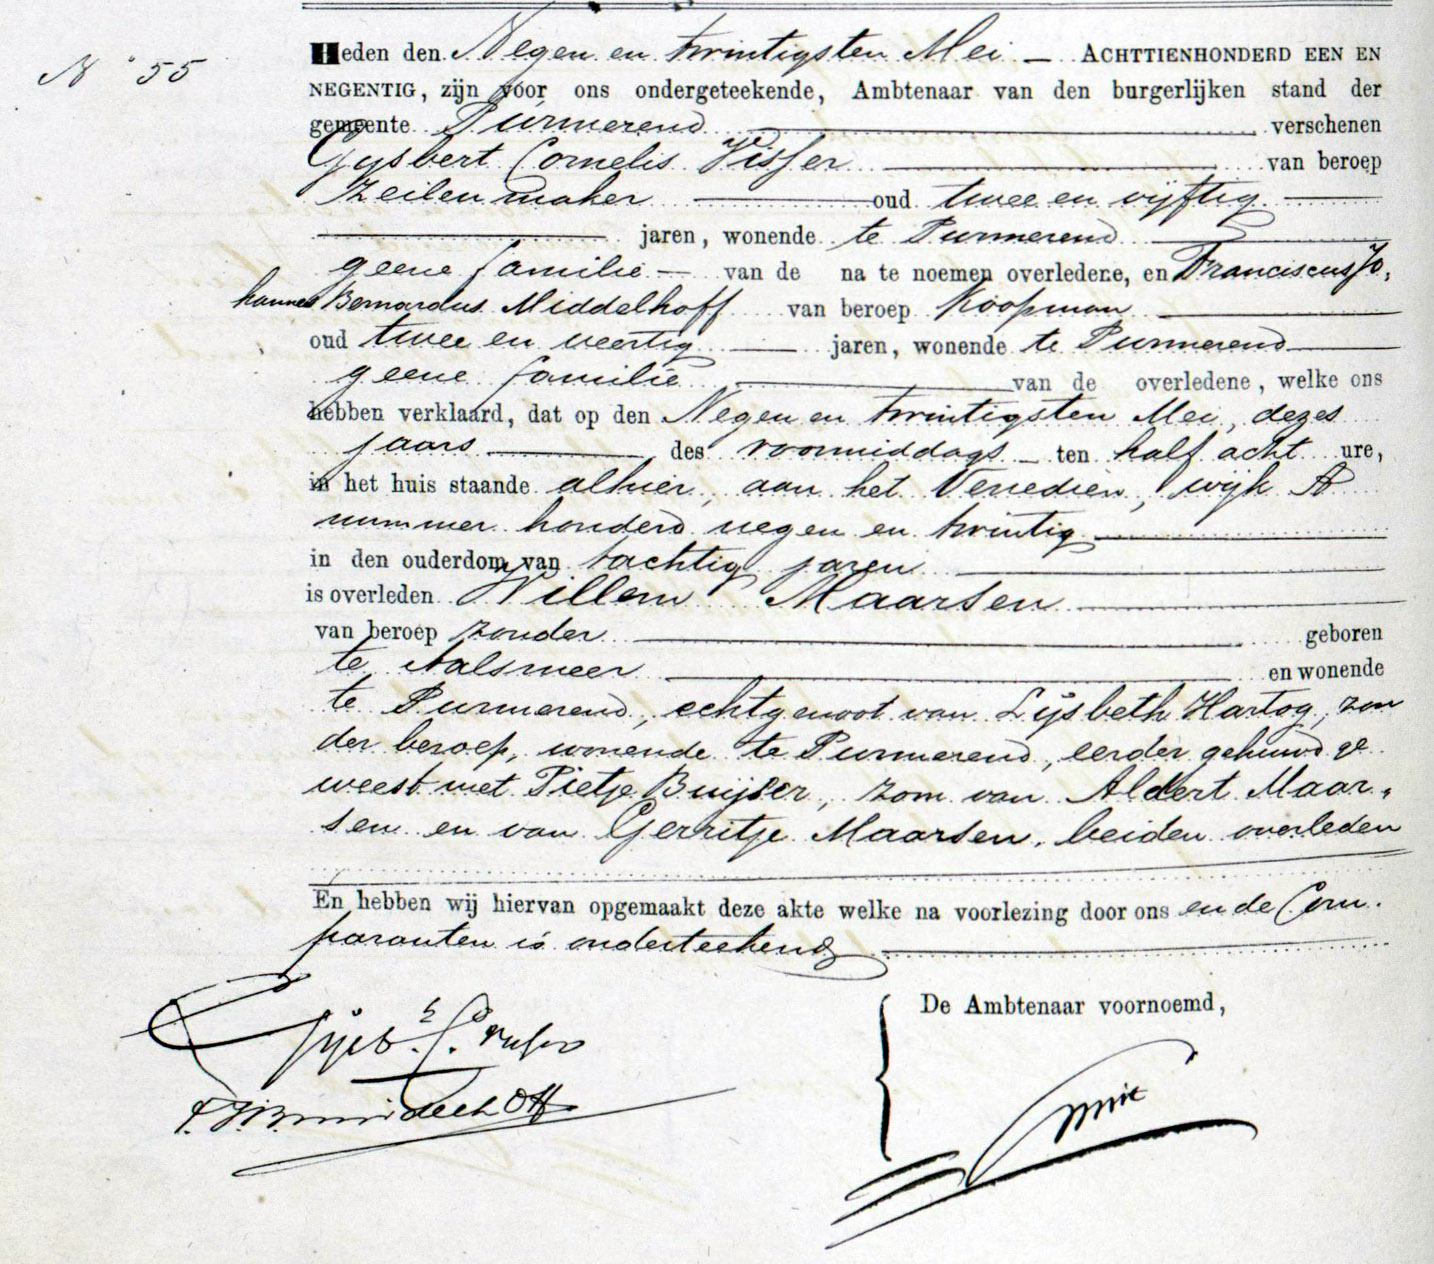 No 55
Heden den Negen en twintigsten Mei — ACHTTIENHONDERD EEN EN
NEGENTIG, zijn voor ons ondergeteekende, Ambtenaar van den burgerlijken stand der
gemeente Purmerend verschenen
Gysbert Cornelis Visser van beroep
zeilenmaker oud twee en vijftig
jaren, wonende te Purmerend
geene familie — van de na te noemen overledene, en Franciscus Jo,
hannes Bernardus Middelhoff van beroep Koopman
oud twee en veertig jaren, wonende te Purmerend
geene familie van de overledene, welke ons
hebben verklaard, dat op den Negen en twintigsten Mei, dezes
jaars des voormiddags ten half acht ure,
in het huis staande alhier, aan het Venediën, wijk A
nummer honderd negen en twintig
in den ouderdom van tachtig jaren
is overleden Willem Maarsen
van beroep zonder geboren
te Aalsmeer en wonende
te Purmerend, echtgenoot van Lijsbeth Hartog, zon
der beroep, wonende te Purmerend, eerder gehuwd ge
weest met Pietje Buijser, zoon van Aldert Maar,
sen en van Gerritje Maarsen, beiden overleden
En hebben wij hiervan opgemaakt deze akte welke na voorlezing door ons en de Com.
paranten is onderteekend
De Ambtenaar voornoemd,
Gijsb.t C. Visser
F.J.B. Middelhoff